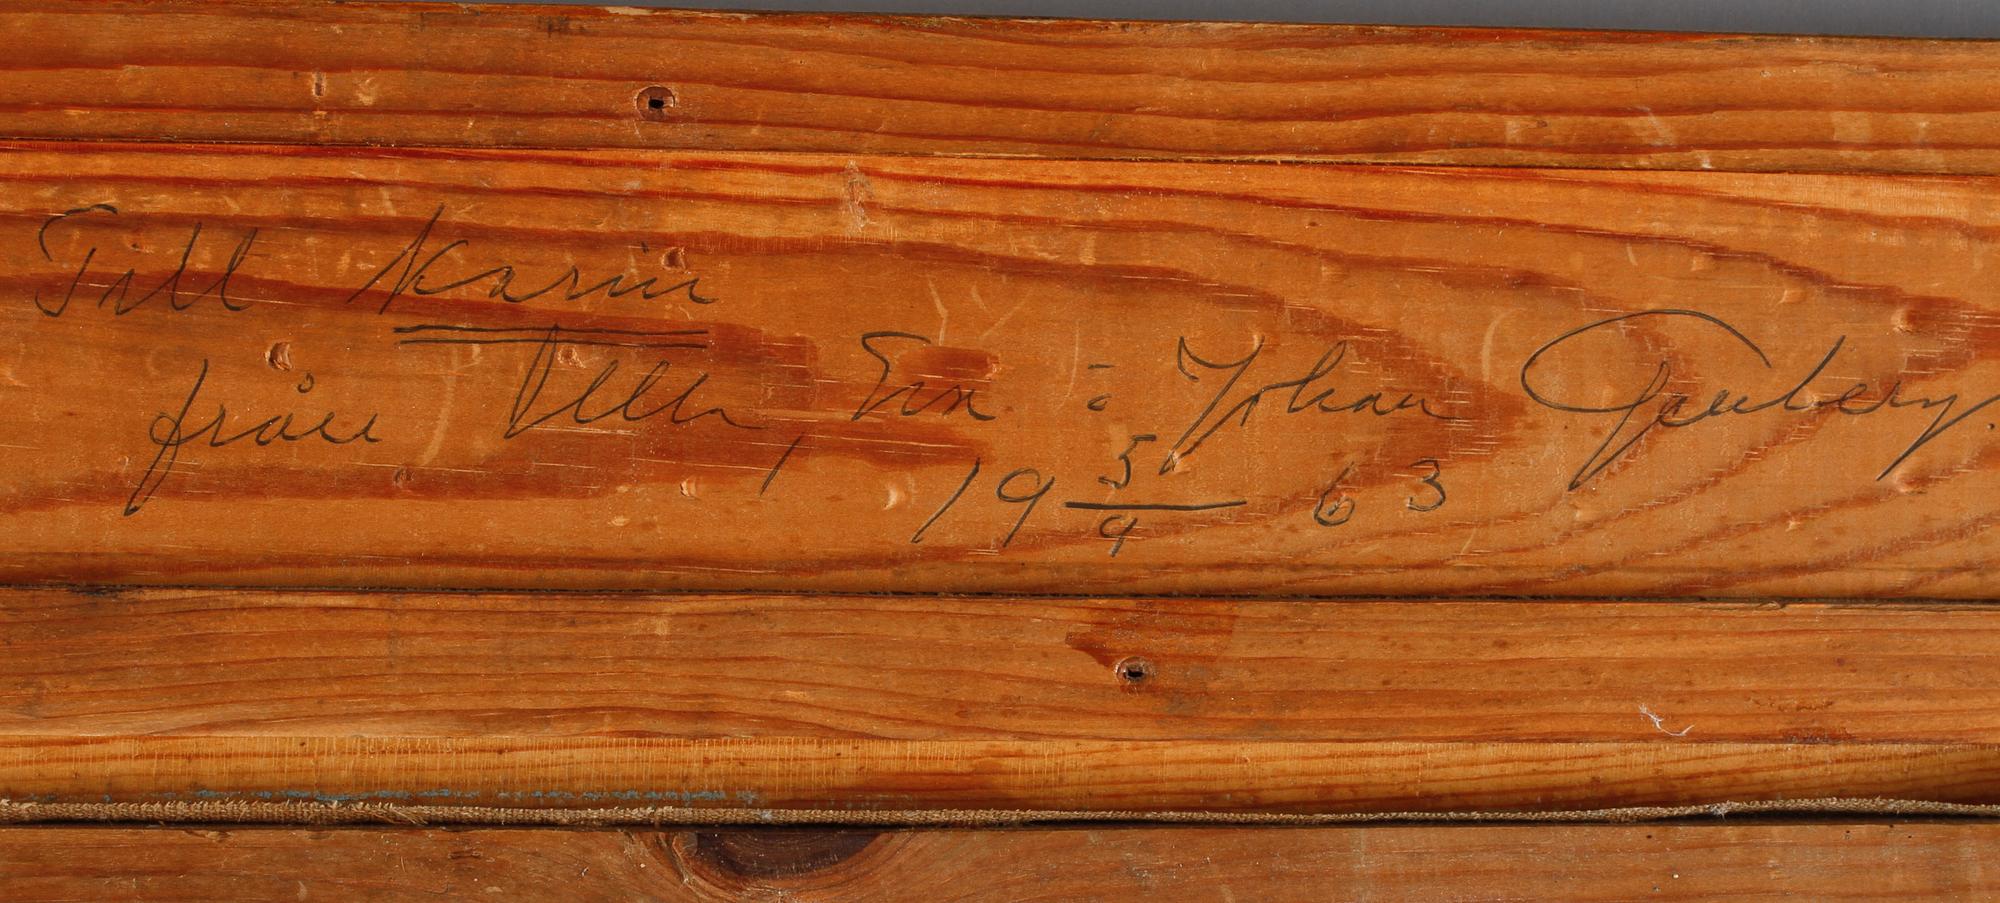 Till Karin
från Ulla, Eva : Johan Tauberg.
19 5/9 63